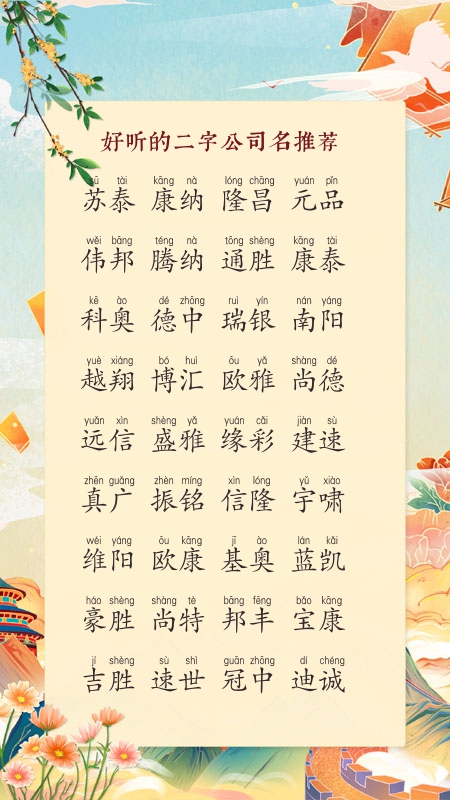 好听的二字公司名推荐
sū tài kāng nà lóng chāng yuán pǐn
苏泰 康纳 隆昌 元品
wěi bāng téng nà tōng shèng kāng tài
伟邦 腾纳 通胜 康泰
kē ào dé zhōng ruì yín nán yáng
科奥 德中 瑞银 南阳
yuè xiáng bó huì ōu yǎ shàng dé
越翔 博汇 欧雅 尚德
yuǎn xìn shèng yǎ yuán cǎi jiàn sù
远信 盛雅 缘彩 建速
zhēn guǎng zhèn míng xìn lóng yǔ xiào
真广 振铭 信隆 宇啸
wéi yáng ōu kāng jī ào lán kǎi
维阳 欧康 基奥 蓝凯
háo shèng shàng tè bāng fēng bǎo kāng
豪胜 尚特 邦丰 宝康
jí shèng sù shì guān zhōng dí chéng
吉胜 速世 冠中 迪诚